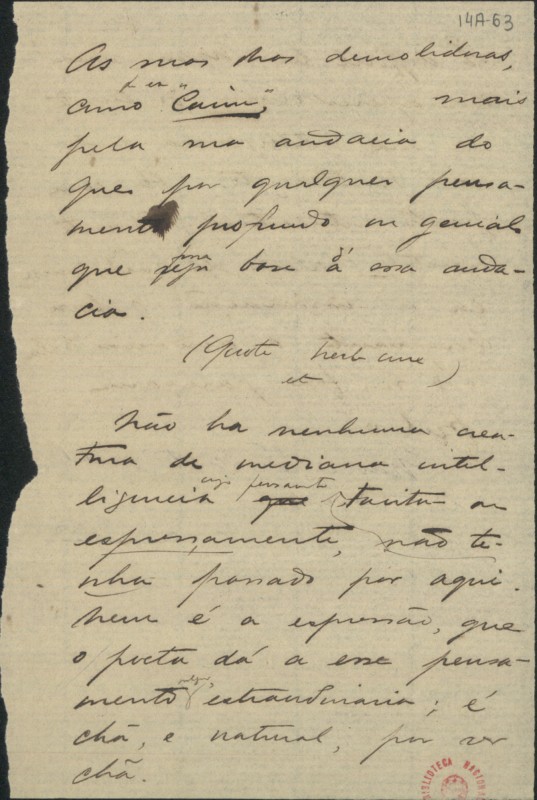 14A-63
As mas mas demolidoras,
p. ex.
como "Caim", mais
pela ma audacia do
que por qualquer pensa-
mento profundo ou genial
que seja uma base á essa auda-
cia.
(Quote here
et
Não ha nenhuma crea-
tura de mediana intel-
ligencia cujo pensamento que tacita ou
expressamente, não te-
nha passado por aqui.
Nem é a expressão, que
o poeta dá a esse pensa-
mento, extraordinaria; é
chã, e natural, por ser
chã.
BIBLIOTECA NACIONAL